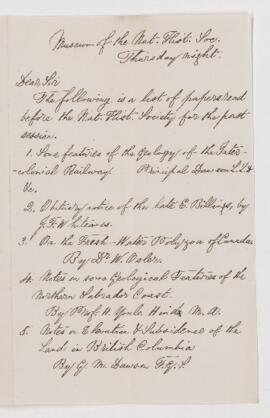 Museum of the Nat. Hist. Soc.
Thursday night.
Dear Sir
The following is a list of papers read
before the Nat. Hist. Society for the past
session.
1. Some features of the Geology of the Inter-
colonial Railway Principal Dawson L.L.D
&c.
2. Obituary notice of the late E Billings, by
J. F. Whiteaves.
3. On the Fresh-Water Polyzoa of Canada
By Dr. W. Osler.
4. Notes on some Geological Features of the
Northern Labrador Coast.
By Prof. H. Youle Hind M.A.
5. Notes on Elevation & Subsidence of the
Land in British Columbia
By G. M. Dawson F.G.S